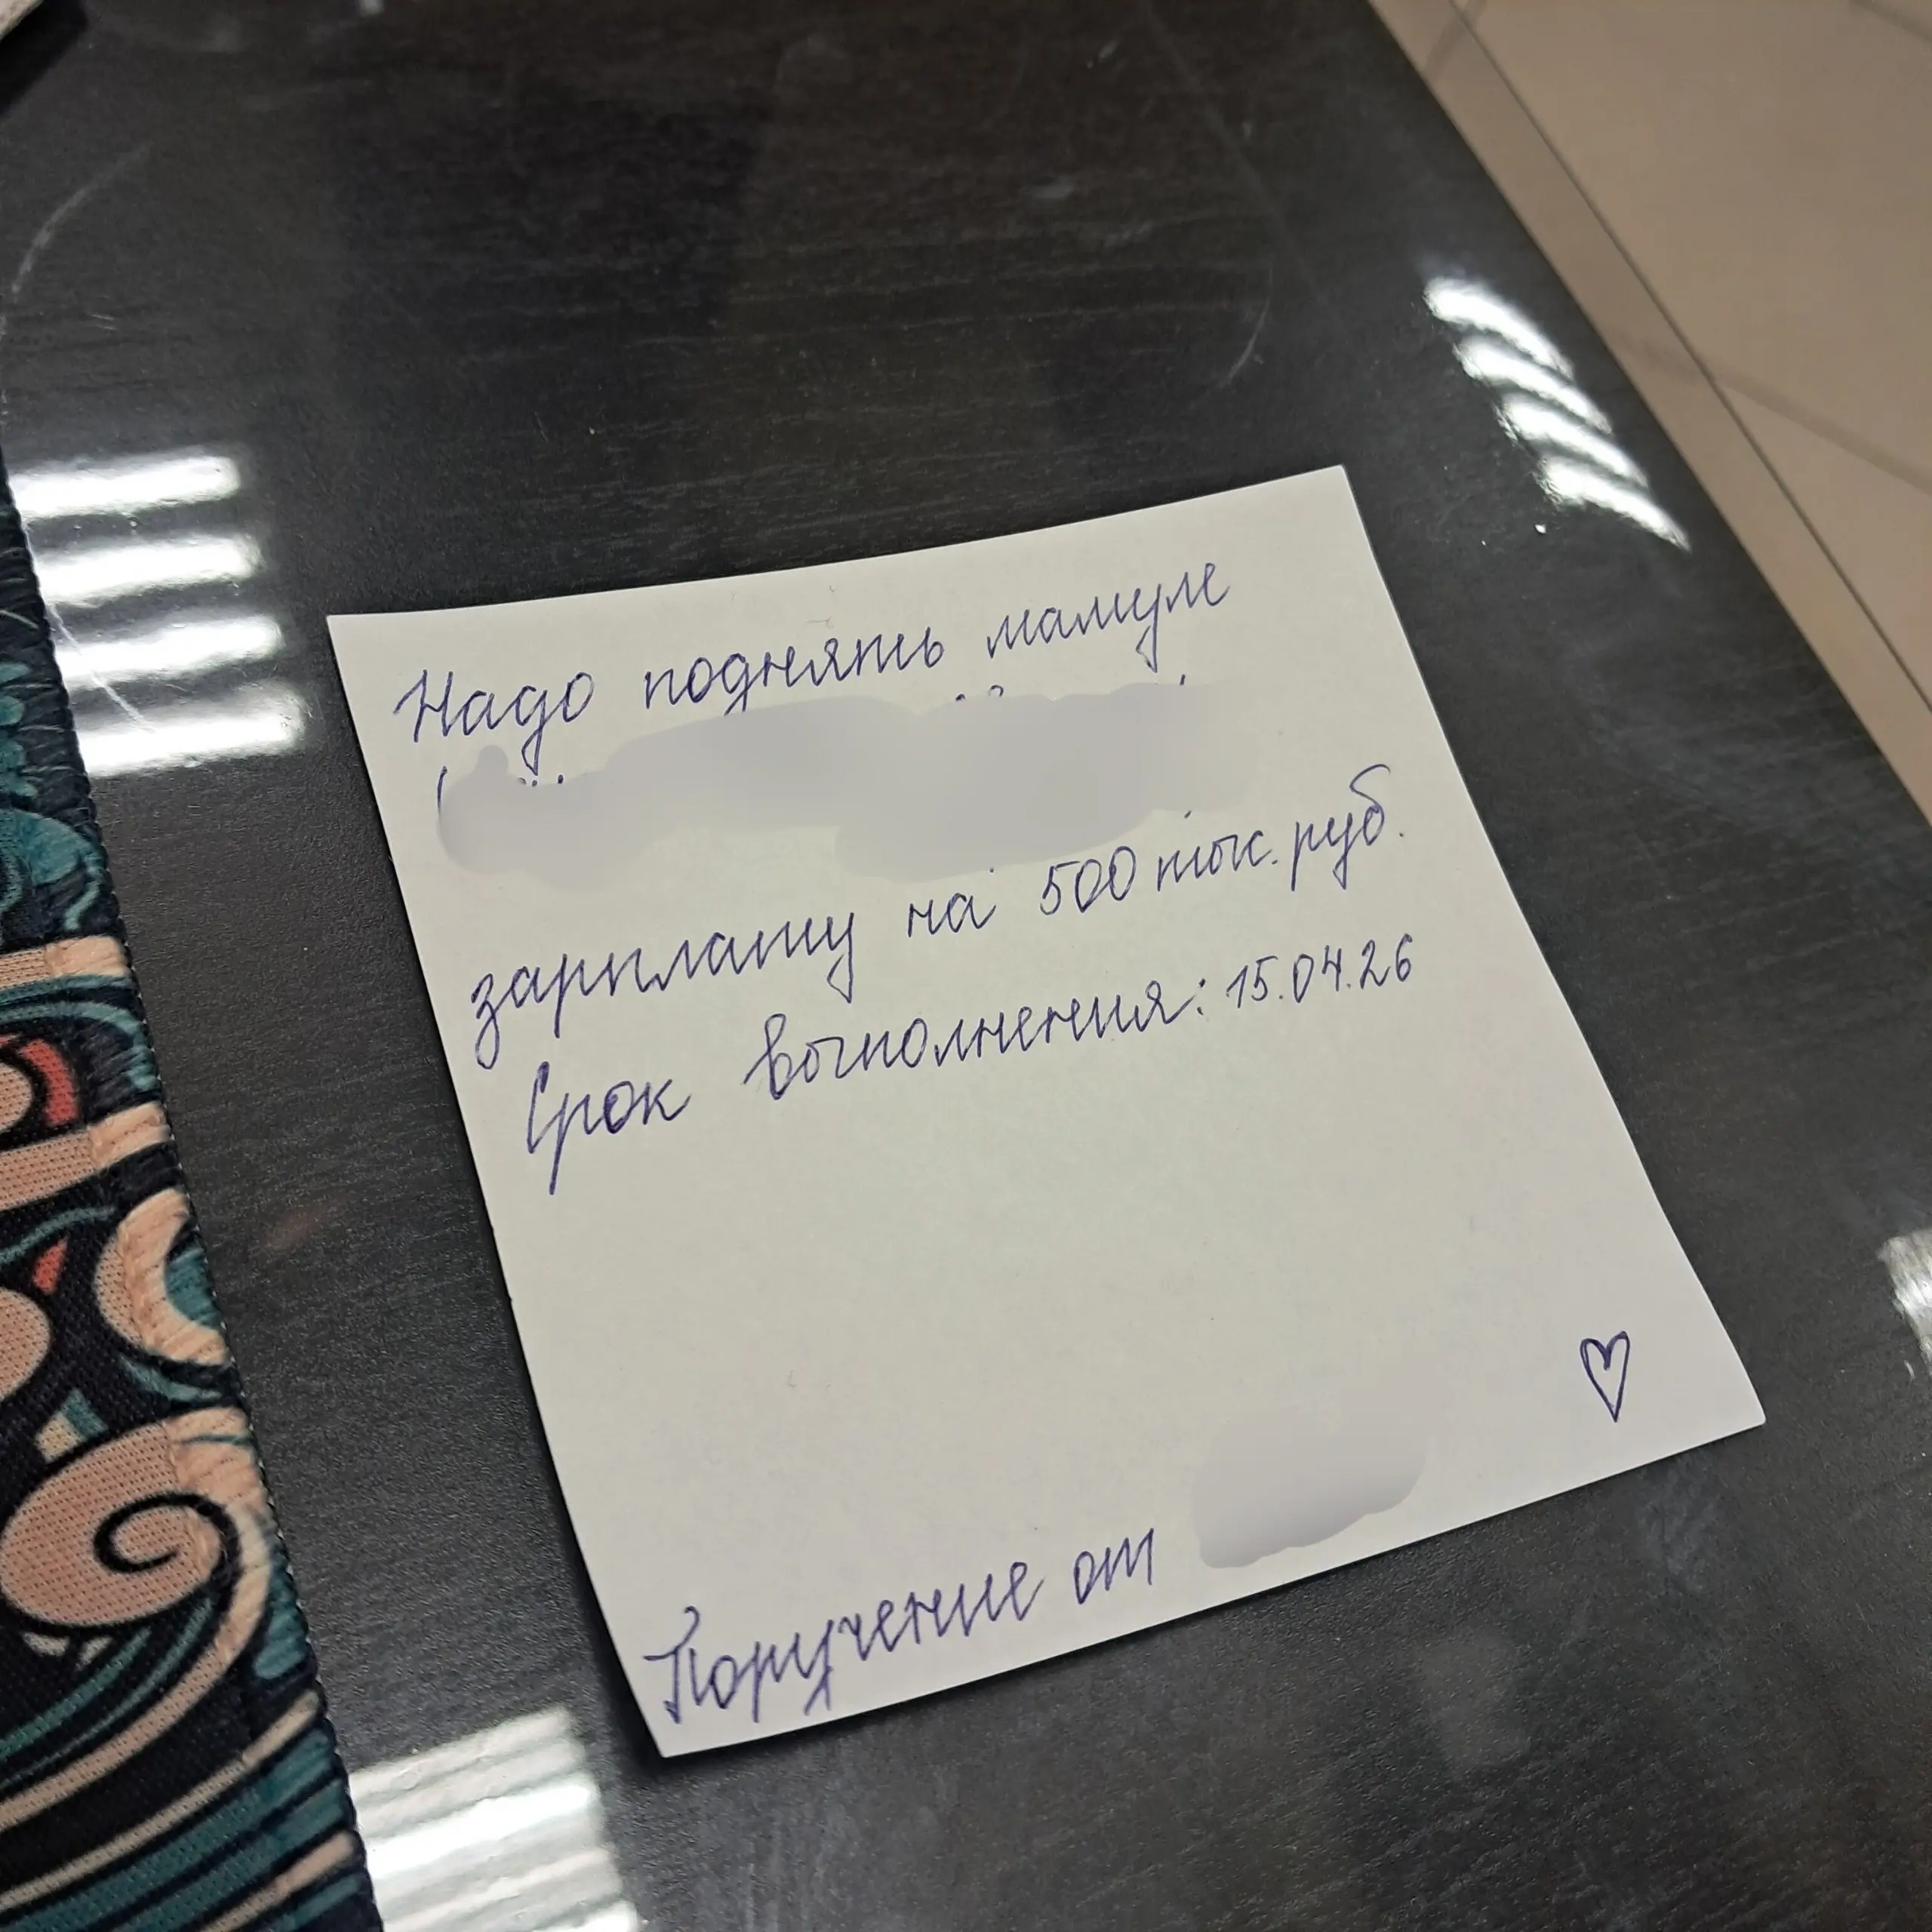 Надо поднять мамуле
зарплату на 500 тыс. руб.
Срок выполнения: 15.04.26
Поручение от